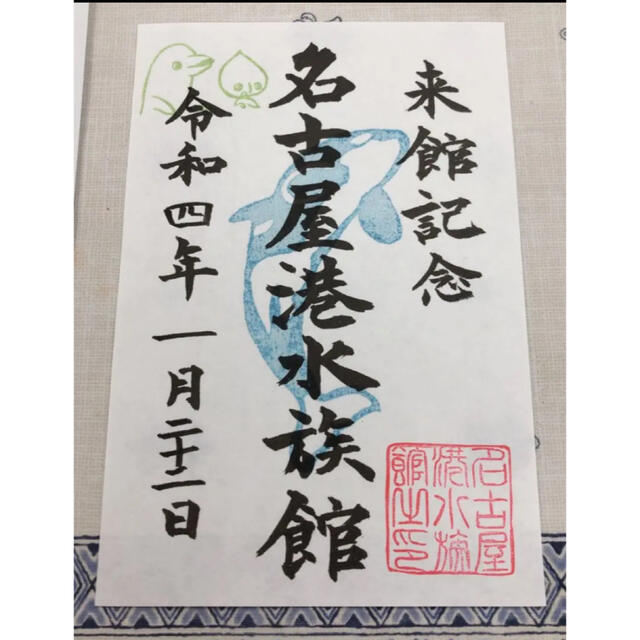 来館記念
名古屋港水族館
令和四年一月二十二日
名古屋
港水族
館之印